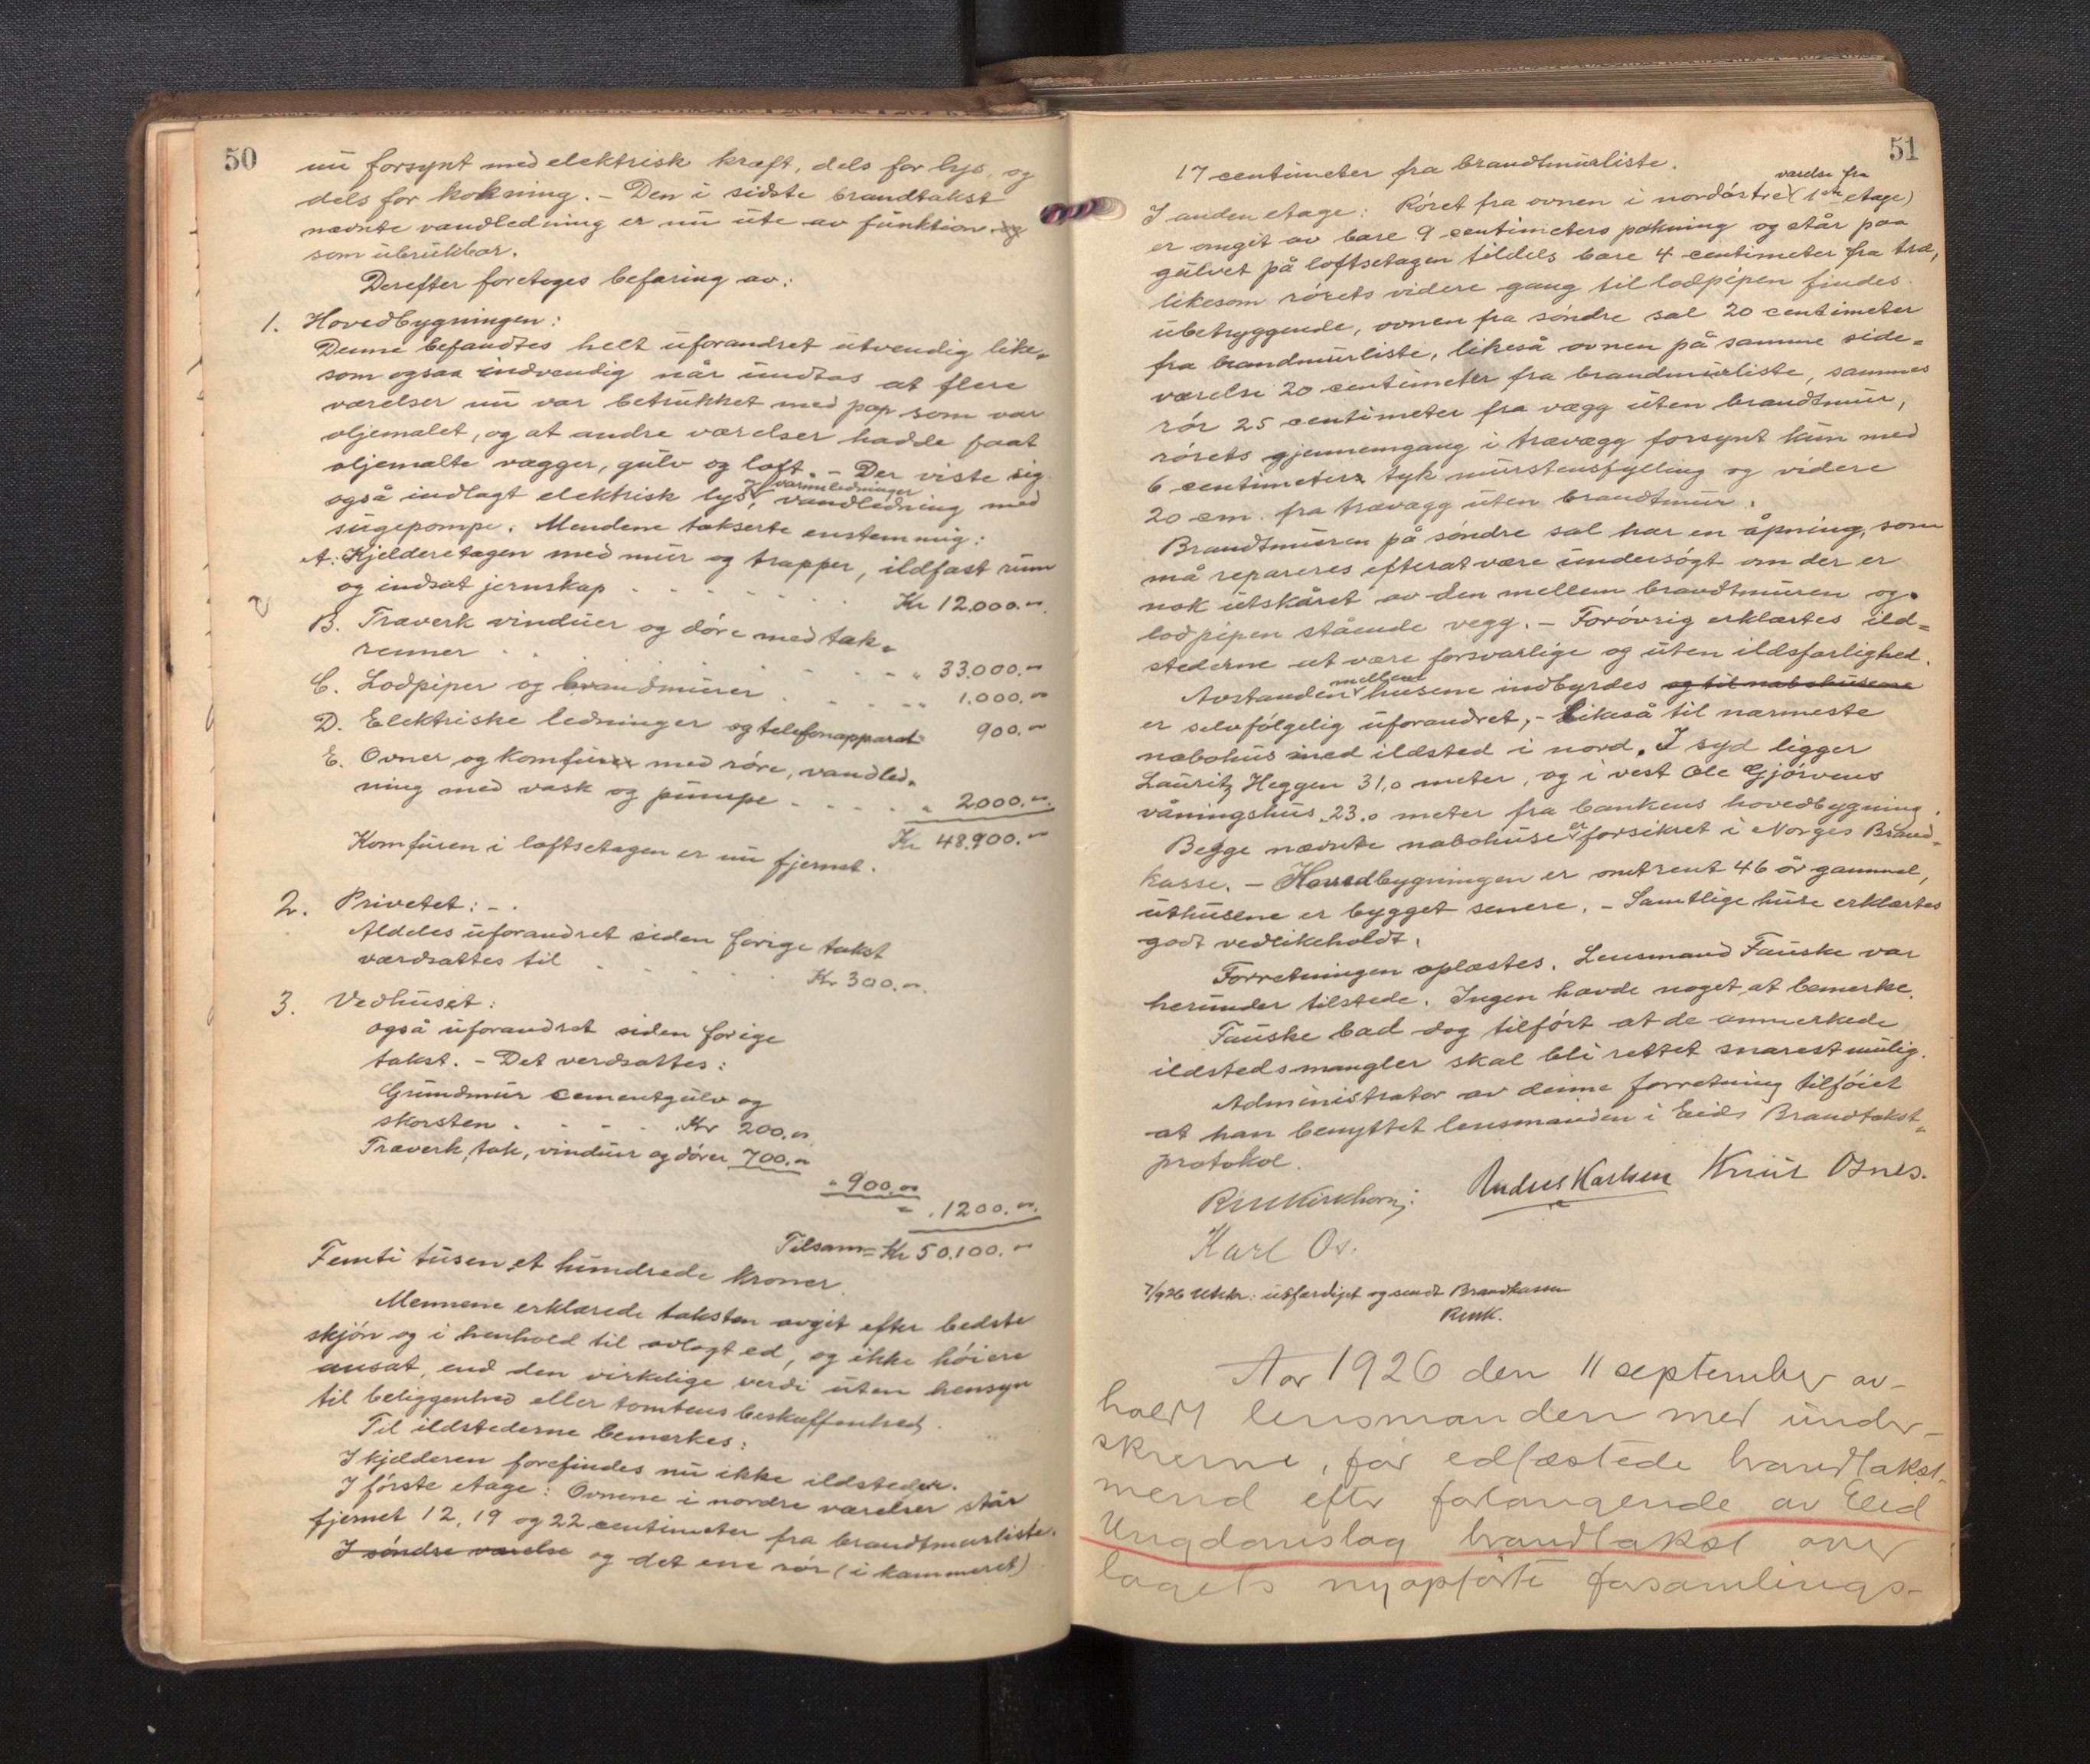 50
nu forsynt med elektrisk kraft, dels for lys, og
dels for kokning. - Den i sidste brandtakst
nævnte vandledning er nu ute av funktion og
som ubrukbar.
Derefter foretoges befaring av:
1. Hovedbygningen:
Denne befandtes helt uforandret utvendig like-
som ogsaa indvendig når undtas at flere
værelser nu var betrukket med pap som var
oljemalet, og at andre værelser hadde faat
oljemalte vægger, gulv og loft. - Der viste sig
også indlagt elektrisk lys, varmeledninger vandledning med
sugepompe. Mendene takserte enstemmig:
A. Kjelderetagen med mur og trapper, ildfast rum
og indsat jernskap . . . . . . Kr 12,000.-
B. Træverk vinduer og døre med tak-
renner . . . . . . " 33.000.-
C. Lodpiper og brandmurer . . . . " 1.000.-
D. Elektriske ledninger og telefonapparat 900.-
E. Ovner og komfurer med røre, vandled-
ning med vask og pumpe . . . . " 2000.-
Kr 48.900.-
Komfuren i loftsetagen er nu fjernet.
2. Privetet: -
Aldeles uforandret siden forige takst
værdsattes til . . . . . . Kr 300.-
3. Vedhuset:
også uforandret siden forige
takst. - Det verdsattes:
Grundmur cementgulv og
skorsten . . . . Kr 200.-
Træverk, tak, vinduer og dører 700.-
" 900.-
" 1200.-
Tilsam = Kr 50.100.-
Femti tusen et hundrede kroner.
Mennene erklærede taksten avgit efter bedste
skjøn og i henhold til avlagt ed, og ikke høiere
ansat, end den virkelige verdi uten hensyn
til beliggenhed eller tomtens beskaffenhed.
Til ildstederne bemerkes:
I kjelderen forefindes nu ikke ildsteder.
I første etage: Ovnene i nordre værelser står
fjernet 12, 19 og 22 centimeter fra brandtmurliste.
I søndre værelse og det ene rør (i kammeret)
51
17 centimeter fra brandtmurliste.
I anden etage: Røret fra ovnen i nordøstre værelse fra (1ste etage)
er omgit av bare 9 centimeters pakning og står paa
gulvet på loftsetagen tildels bare 4 centimeter fra træ,
likesom rørets videre gang til lodpipen findes
ubetryggende, ovnen fra søndre sal 20 centimeter
fra brandmurliste, likeså ovnen på samme side-
værelse 20 centimeter fra brandmurliste, sammes
rør 25 centimeter fra vægg uten brandtmur,
rørets gjennemgang i trævægg forsynt kun med
6 centimeters tyk murstensfylling og videre
20 cm. fra trævægg uten brandtmur.
Brandtmuren på søndre sal har en åpning, som
må repareres efterat være undersøgt om der er
nok utskåret av den mellem brandtmuren og
lodpipen stående vegg. - Forøvrig erklærtes ild-
stederne at være forsvarlige og uten ildsfarlighed.
Avstanden mellem husene indbyrdes og til nabohusene
er selvfølgelig uforandret, - Likeså til nærmeste
nabohus med ildsted i nord. I syd ligger
Lauritz Heggen 31,0 meter, og i vest Ole Gjørvens
våningshus 23.0 meter fra bankens hovedbygning.
Begge nævnte nabohuse er forsikret i Norges Brand-
kasse. - Hovedbygningen er omtrent 46 år gammel,
uthusene er bygget senere. - Samtlige huse erklærtes
godt vedlikeholdt.
Forretningen oplæstes. Lensmand Fauske var
herunder tilstede. Ingen havde noget at bemerke.
Fauske bad dog tilført at de anmerkede
ildstedsmangler skal bli rettet snarest mulig.
Administrator av denne forretning tilføiet
at han benyttet lensmanden i Eids Brandtakst-
protokol.
Andres Karlsen Knut Osnes.
Karl Os.
7/9 26 Utskr: utfærdiget og sendt Brandkassen
Aar 1926 den 11 september av-
holdt lensmanden med under-
skrevne, før edfæstede brandtakst-
mend efter forlangende av Eid
Ungdomslag brandtakst over
lagets nyopførte forsamlings-